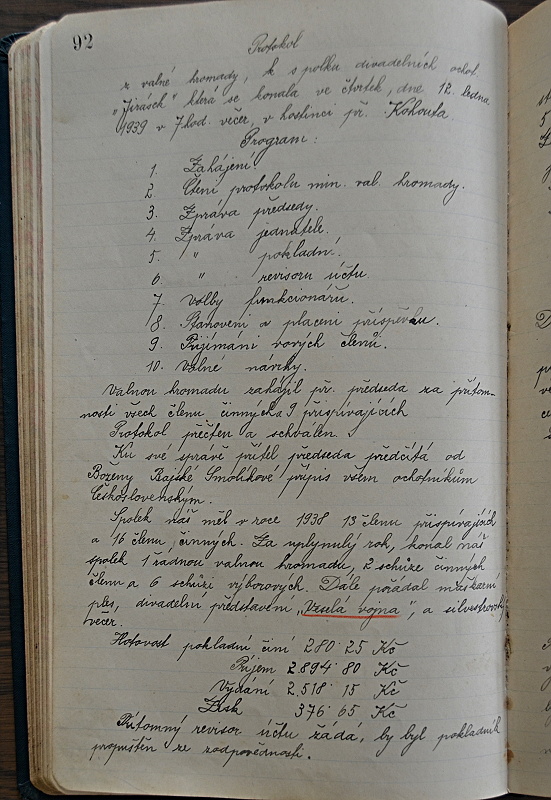 92
Protokol
z valné hromady, k spolku divadelních ochot.
"Jirásek" která se konala ve čtvrtek, dne 12. ledna
1939 v 7 hod. večer, v hostinci př. Kohouta.
Program:
1. Zahájení.
2. Čtení protokolu min. val. hromady.
3. Zpráva předsedy.
4. Zpráva jednatele.
5. " pokladní.
6. " revisoru účtu.
7. Volby funkcionářu.
8. Stanoveni a placeni příspěvku.
9. Přijímáni nových členů.
10. Volné návrhy.
Valnou hromadu zahájil př. předseda za přítom-
nosti všech členu činných a 9 přispívajících
Protokol přečten a schválen.
Ku své správě přítel předseda předčítá od
Boženy Smolíkové přípis všem ochotníkům
Československým.
Spolek náš měl v roce 1938 13 členu přispívajících
a 16 členu, činných. Za uplynulý rok, konal náš
spolek 1 řádnou valnou hromadu, 2 schůze činných
členu a 6 schůzí výborových. Dále pořádal maškarní
ples, divadelní představení "Veselá vojna", a silvestrovský
večer.
Hotovost pokladní činí 280·25 Kč
Příjem 2.894·80 Kč
Vydání 2.518·15 Kč
Zisk 376·65 Kč
Přítomný revisor účtu žádá, by byl pokladník
propuštěn ze zodpovědnosti.